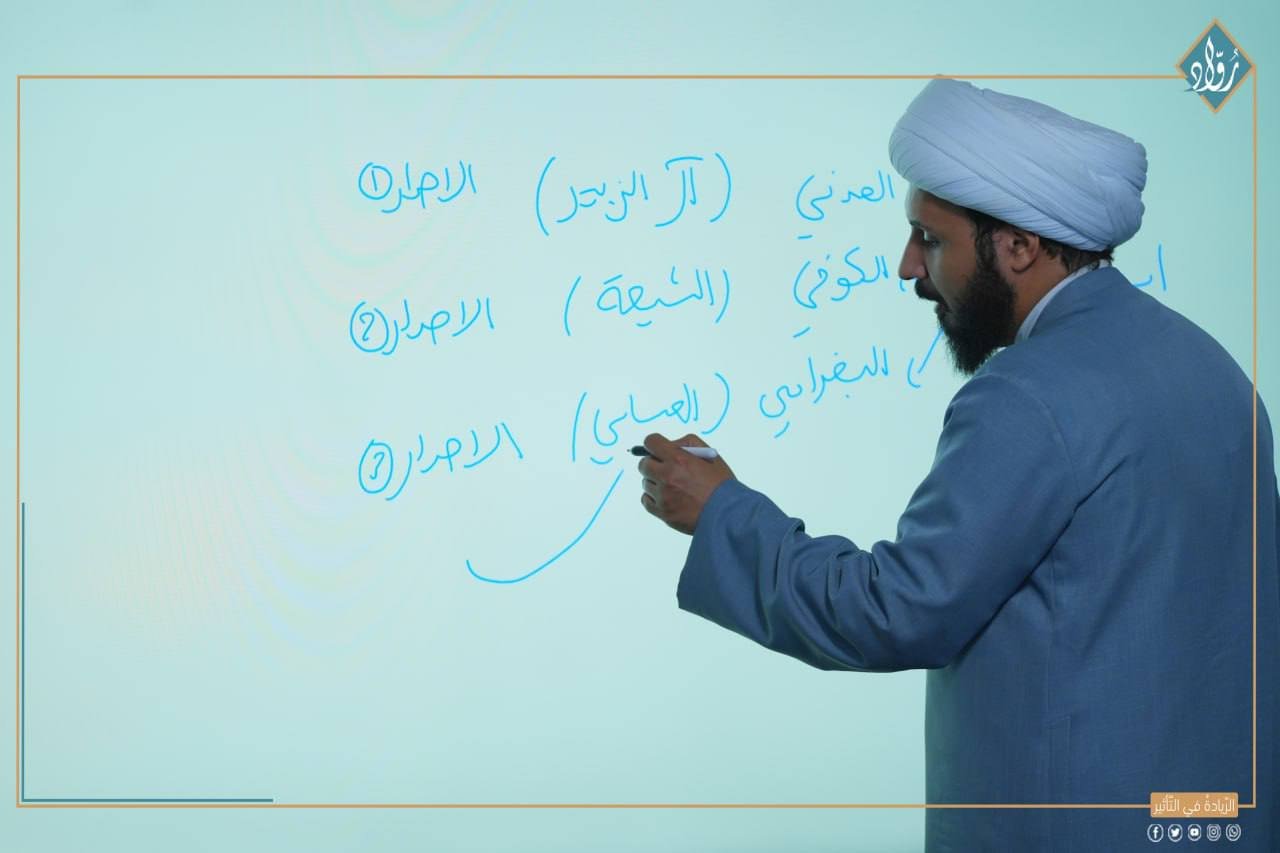 رُوّاد
المدني (آل الزبير) الاصدار ①
الكوفي (الشيعة) الاصدار ②
البغدادي (العباسي) الاصدار ③
الرّيادةُ في التّأثير